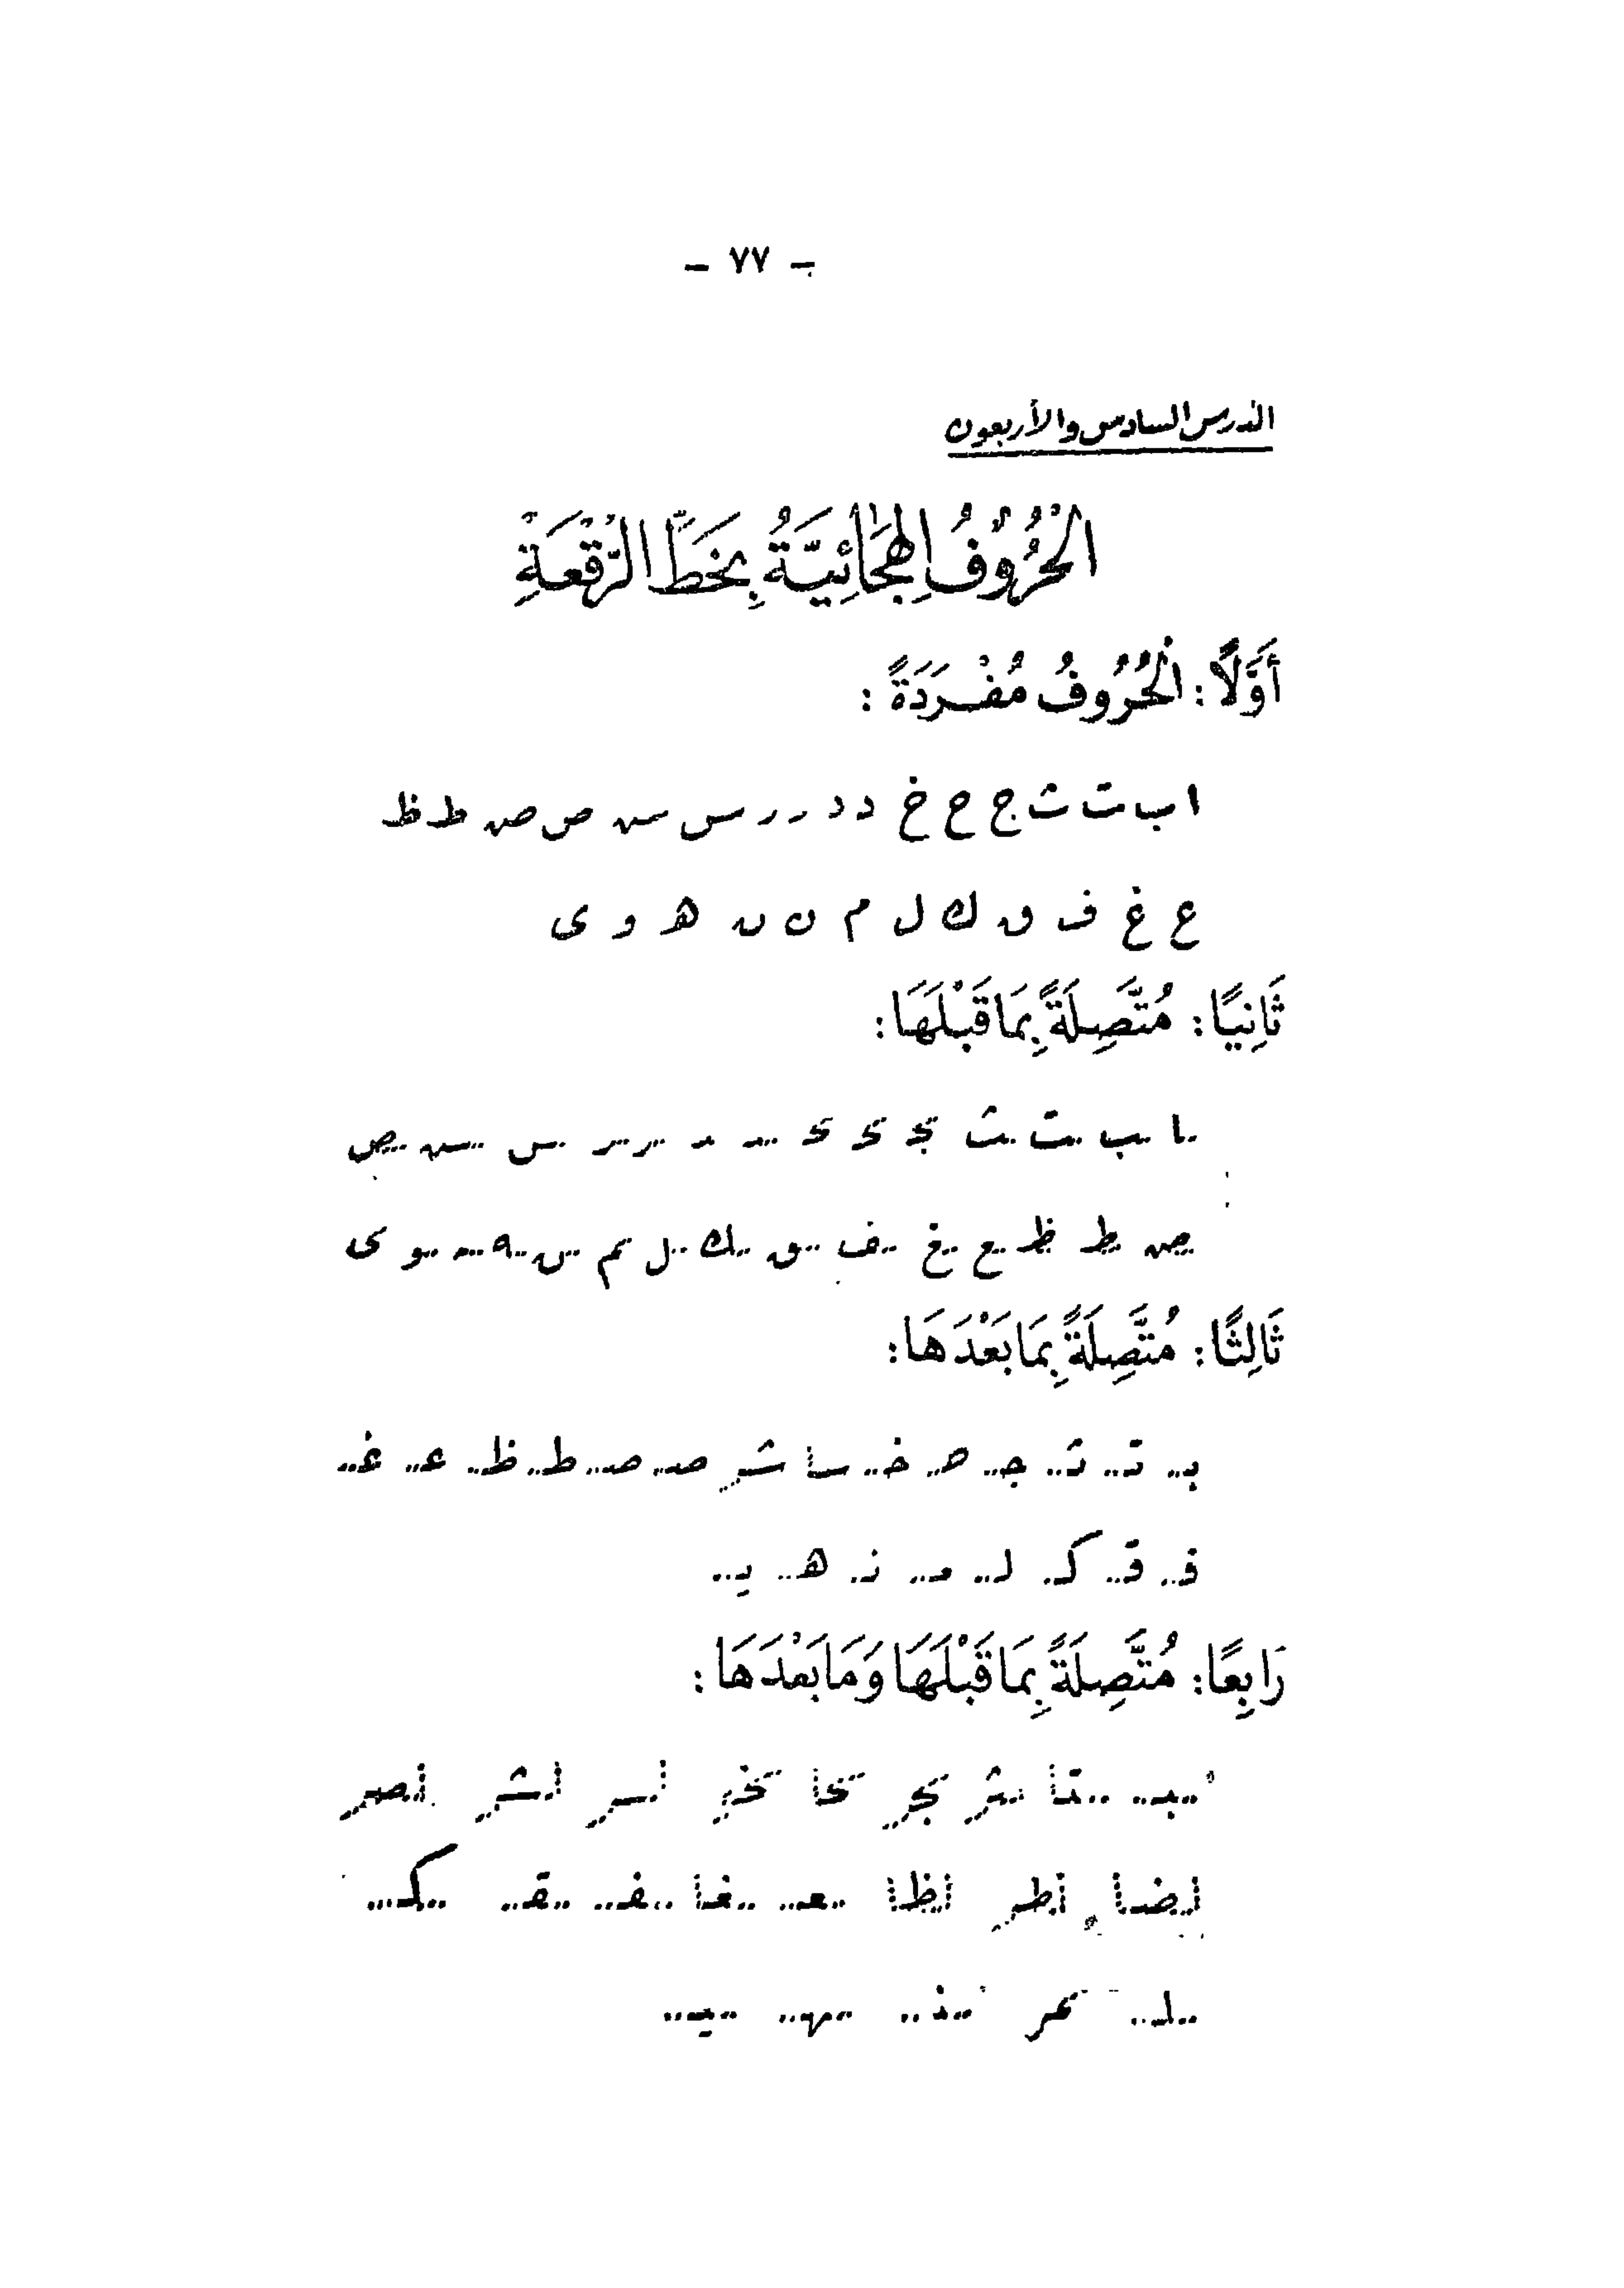 - ٧٧ -
الدرس السادس والأربعون
الْحُرُوفُ الْهِجَائِيَّةُ بِخَطِّ الرُّقْعَةِ
أَوَّلًا: الْحُرُوفُ مُفْرَدَةً:
ا ب ت ث ج ح خ د د ر ر س س ص ص ط ظ
ع غ ف ق ك ل م ن ن ه و ى
ثَانِيًا: مُتَّصِلَةً بِمَا قَبْلَهَا:
ـا ـب ـت ـث ـج ـح ـح ـد ـد ـر ـر ـس ـس ـص
ـص ـط ـظ ـع ـغ ـف ـق ـك ـل ـم ـن ـه ـه ـو ـى
ثَالِثًا: مُتَّصِلَةً بِمَا بَعْدَهَا:
بـ تـ ثـ جـ حـ خـ سا شر صـ صـ طـ ظـ عـ غـ
فـ قـ كـ لـ مـ نـ هـ يـ
رَابِعًا: مُتَّصِلَةً بِمَا قَبْلَهَا وَمَا بَعْدَهَا:
ـبـ ـتا ـثر ـجر ـحا ـخر لسر لشر لصر
لضا لطر لظا ـعـ ـغا ـفـ ـقـ ـكـ
ـلـ ـمر ـنـ ـهـ ـيـ